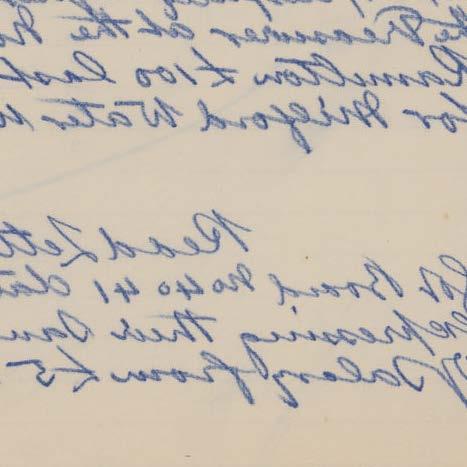 Treasurer at the
Hamilton £100 last
for Milford Water
Read Lett
Board No 4041 dat
expressing their
Salary from £5